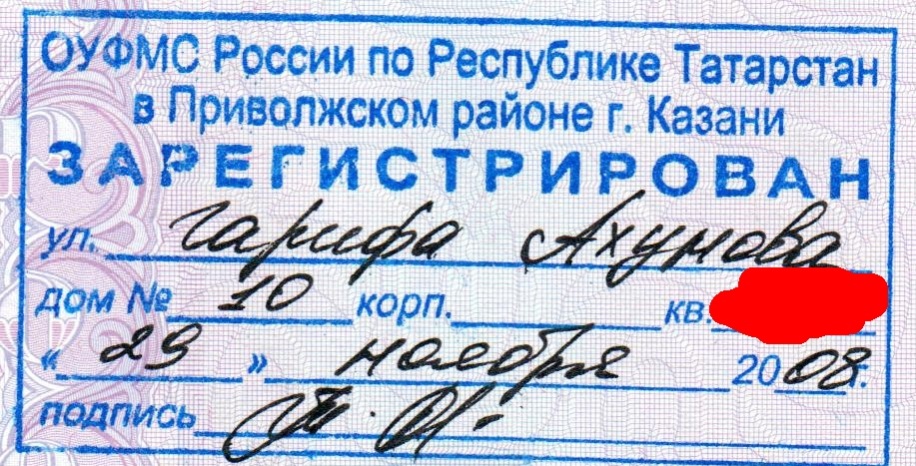 ОУФМС России по Республике Татарстан
в Приволжском районе г. Казани
ЗАРЕГИСТРИРОВАН
ул. Гарифа Ахунова
дом № 10 корп. кв.
« 29 » ноября 2008 г.
подпись